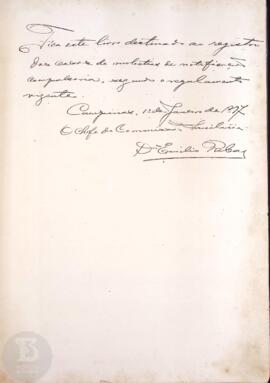 Fica este livro destinado ao registro
dos casos de molestias de notificação
compulsoria, segundo o regulamento
vigente.
Campinas, 1 de Janeiro de 1897
O Chefe da Commissão Sanitaria
Dr Emilio Ribas